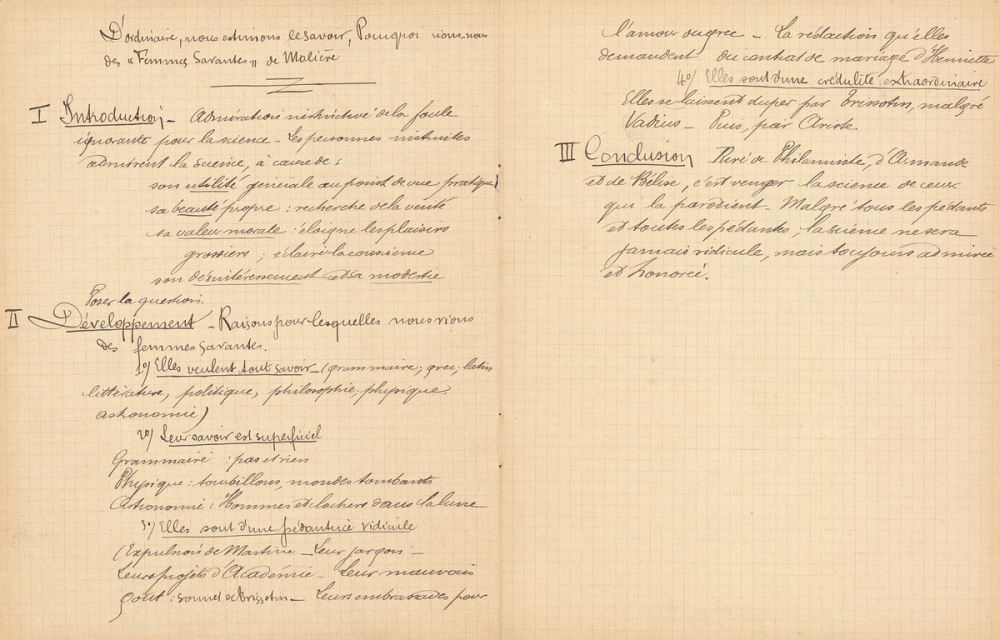 D'ordinaire, nous estimons le savoir, Pourquoi rions-nous
des « Femmes Savantes » de Molière
I Introduction – Admiration instinctive de la foule
ignorante pour la science – Les personnes instruites
admirent la science, à cause de :
son utilité générale au point de vue pratique
sa beauté propre : recherche de la vérité
sa valeur morale : éloigne les plaisirs
grossiers ; éclaire la conscience
son désintéressement et sa modestie
Poser la question.
II Développement – Raisons pour lesquelles nous rions
des femmes savantes.
1o/ Elles veulent tout savoir – (grammaire, grec, latin
littérature, politique, philosophie, physique
astronomie)
2o/ Leur savoir est superficiel
Grammaire : pas et rien
Physique : tourbillons, mondes tombants
Astronomie : Hommes et clochers dans la lune
3o/ Elles sont d'une pédanterie ridicule
(Expulsion de Martine – Leur jargon –
Leurs projets d'Académie – Leur mauvais
goût : sonnet de Trissotin – Leurs embrassades pour
l'amour du grec – La rédaction qu'elles
demandent du contrat de mariage d'Henriette
4o/ Elles sont d'une crédulité extraordinaire
Elles se laissent duper par Trissotin, malgré
Vadius – Puis, par Ariste.
III Conclusion Rire de Philaminte, d'Armande
et de Bélise, c'est venger la science de ceux
qui la parodient – Malgré tous les pédants
et toutes les pédantes, la science ne sera
jamais ridicule, mais toujours admirée
et honorée.